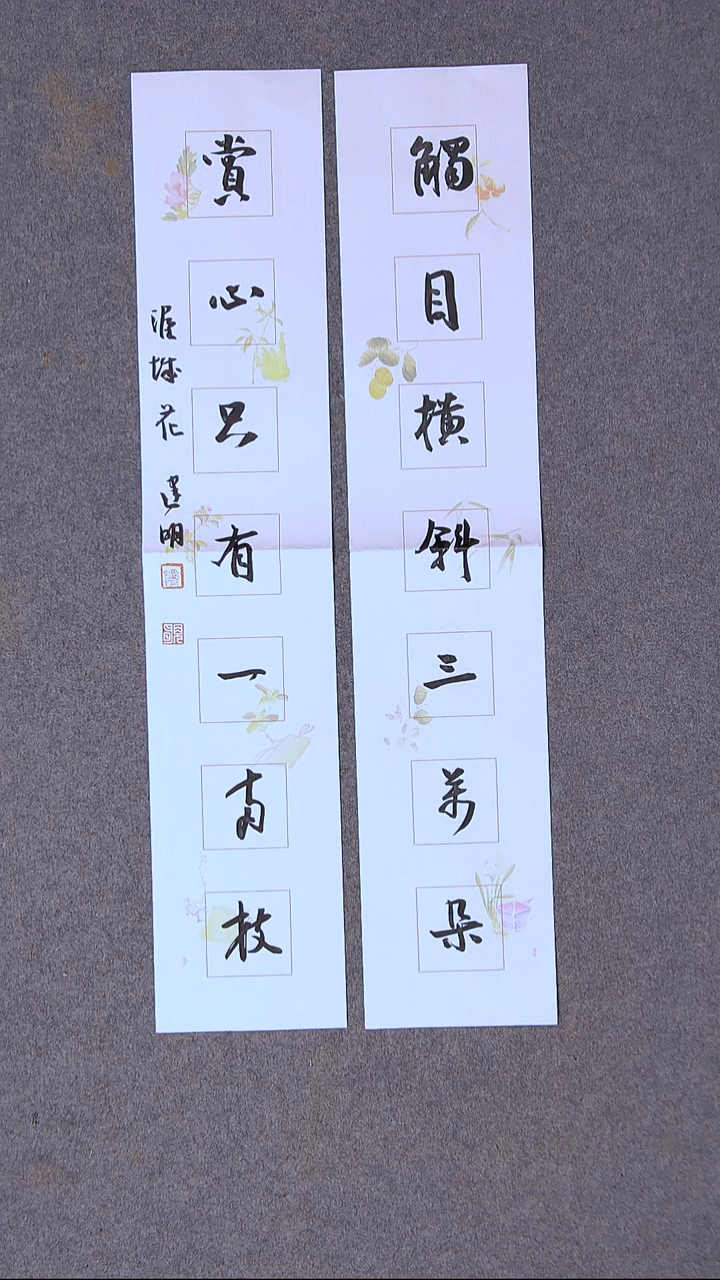 觸目橫斜三萬朵
賞心只有一兩枝
城花 建明